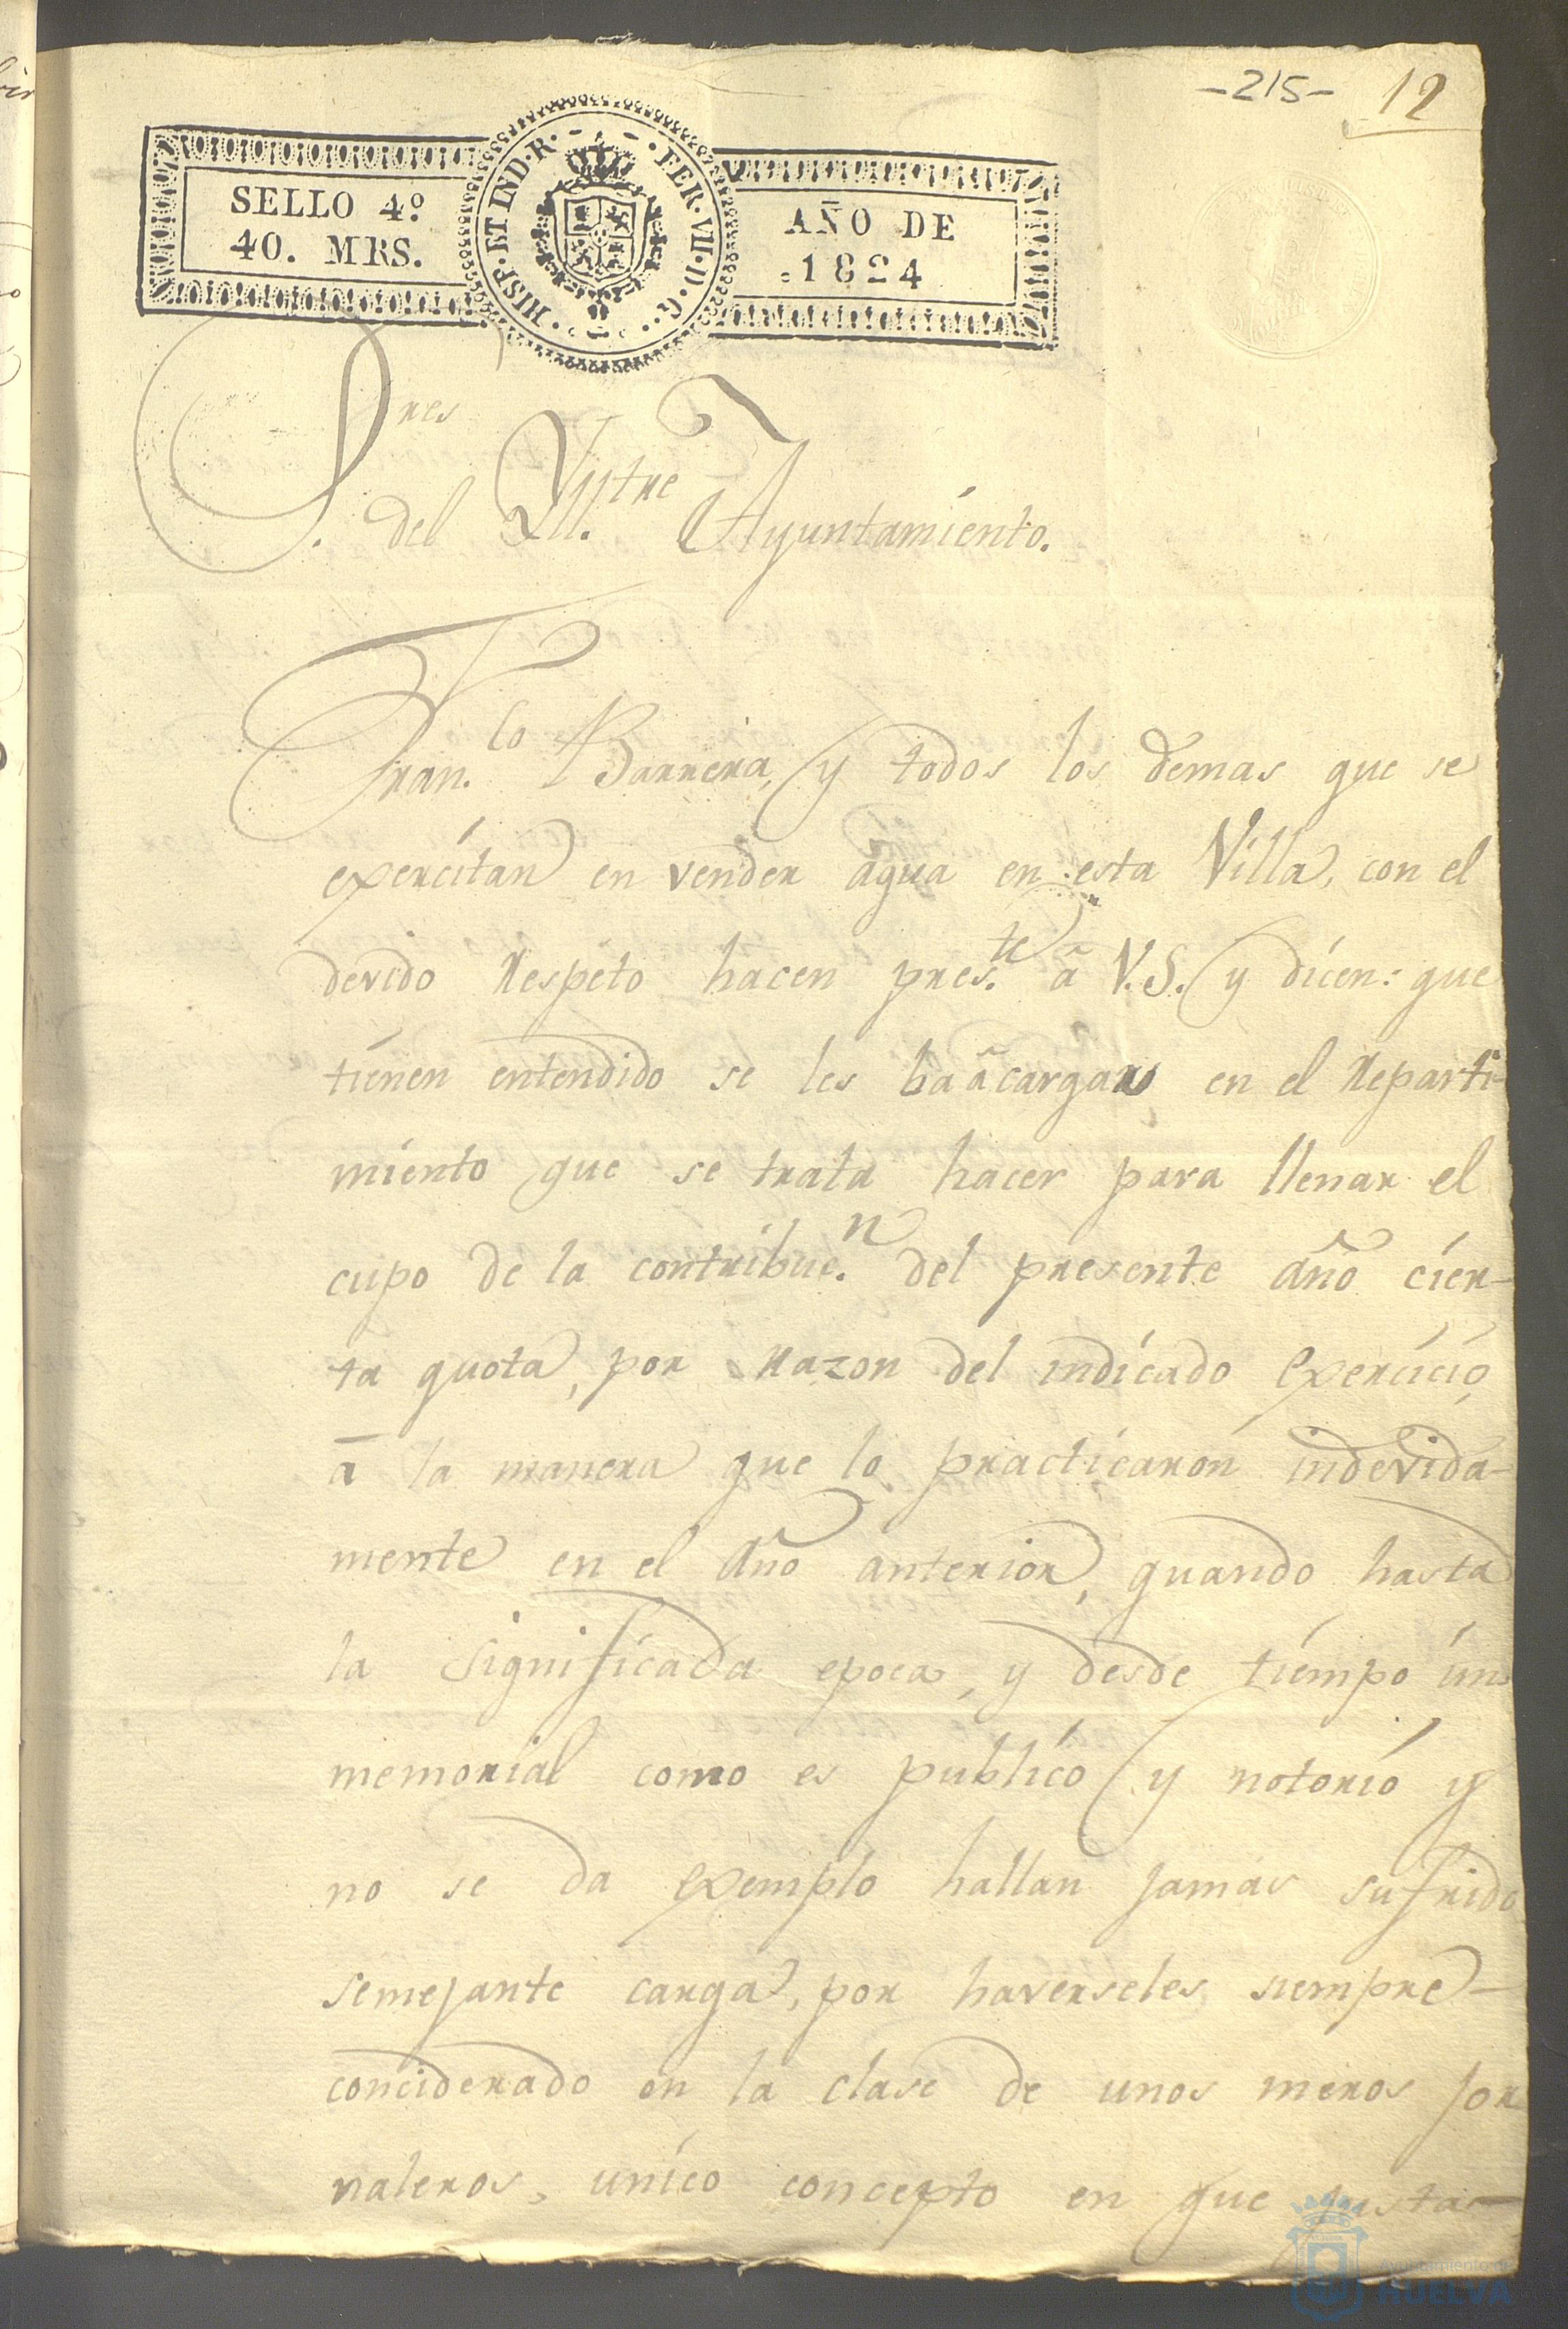 -215- 12
SELLO 4º
40. MRS.
HISP·ET IND·R· FER·VII·D·G·
AÑO DE
1824
S.res
del Ill.tre Ayuntamiento.
Fran.co Barrera, y todos los demas que se
exercitan en vender agua en esta Villa, con el
devido Respeto hacen pres.te â V.S. y dicen: que
tienen entendido se les ha â cargar en el Reparti-
miento que se trata hacer para llenar el
cupo de la contribuc.n del presente año cier-
ta quota, por Razon del indicado Exercicio,
â la manera que lo practicaron indevida-
mente en el año anterior, quando hasta
la significada epoca, y desde tiempo ím
memorial como es publico y notorio y
no se da Exemplo hallan jamas sufrido
semejante carga, por haverseles siempre-
conciderado en la clase de unos meros jor
naleros, unico concepto en que justa-
Ayuntamiento de
HUELVA